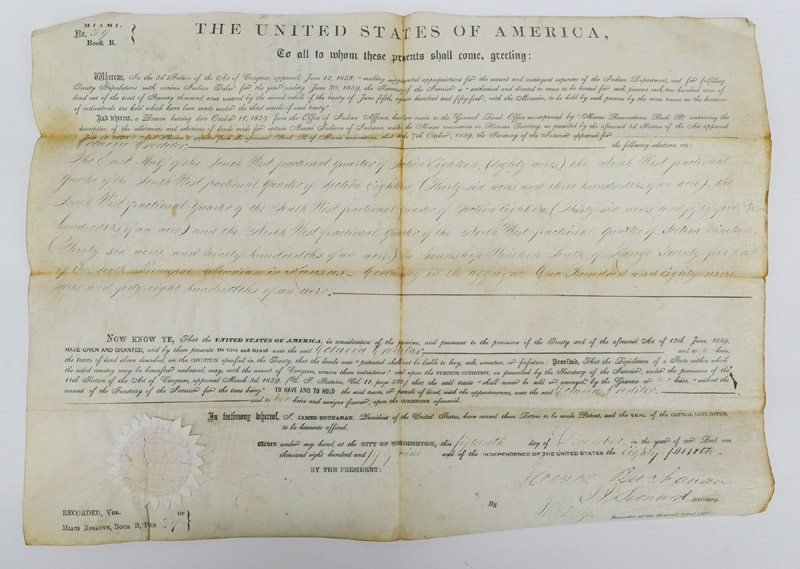 MIAMI.
No. 39
Book B.
THE UNITED STATES OF AMERICA,
To all to whom these presents shall come, greeting:
Whereas, In the 3d Section of the Act of Congress, approved June 12, 1858, "making supplemental appropriations for the current and contingent expenses of the Indian Department, and for fulfilling
Treaty Stipulations with various Indian Tribes" for the year ending June 30, 1859, the Secretary of the Interior is "authorized and directed to cause to be located for such persons each two hundred acres of
land out of the tract of Seventy thousand acres reserved by the second article of the treaty of June fifth, eighteen hundred and fifty-four, with the Miamies, to be held by such persons by the same tenure as the locations
of individuals are held which have been made under the third article of said treaty."
And whereas, a Return bearing date October 11, 1859, from the Office of Indian Affairs has been made to the General Land Office accompanied by "Miami Reservations, Book B," containing the
description of the allotments and selections of lands made for certain Miami Indians of Indiana, within the Miami reservation in Kansas Territory, as provided by the aforesaid 3d Section of the Act approved
the following selections, viz:
The East Half of the South West fractional quarter of Section Eighteen, (eighty acres) the North West fractional
Quarter of the South West fractional Quarter of Section Eighteen, (Thirty six acres and three hundredths of an acre) the
South West fractional Quarter of the South West fractional Quarter of Section Eighteen (Thirty six acres and fifty five
hundredths of an acre) and the North West fractional Quarter of the North West fractional Quarter of Section Nineteen,
(Thirty six acres and ninety hundredths of an acre) in Township Nineteen South of Range Twenty five East
of the Sixth Principal Meridian in Kansas. Containing in the aggregate One Hundred and eighty nine
acres and forty eight hundredths of an acre.
NOW KNOW YE, That the UNITED STATES OF AMERICA, in consideration of the premises, and pursuant to the provisions of the Treaty and of the aforesaid Act of 12th June, 1858,
HAVE GIVEN AND GRANTED, and by these presents Do Give and Grant unto the said and to heirs,
the tracts of land above described, on the CONDITION specified in the Treaty, that the lands now "patented shall not be liable to levy, sale, execution, or forfeiture: Provided, That the Legislature of a State within which
the ceded country may be hereafter embraced, may, with the assent of Congress, remove these restrictions;" and upon the FURTHER CONDITION, as prescribed by the Secretary of the Interior, under the provisions of the
11th Section of the Act of Congress, approved March 3d, 1859, (Vol. 11, page 430) that the said tracts "shall never be sold or conveyed by the Grantee or heirs, "without the
consent of the Secretary of the Interior for the time being." TO HAVE AND TO HOLD the said tracts, or parcels of land, with the appurtenances, unto the said
and to heirs and assigns forever, upon the CONDITIONS aforesaid.
In testimony whereof, I, JAMES BUCHANAN, President of the United States, have caused these Letters to be made Patent, and the SEAL of the GENERAL LAND OFFICE
to be hereunto affixed.
GIVEN under my hand, at the CITY OF WASHINGTON, this day of December, in the year of our Lord one
thousand eight hundred and fifty nine and of the INDEPENDENCE OF THE UNITED STATES the eighty fourth.
BY THE PRESIDENT:
James Buchanan
By
Secretary.
Recorder of the General Land Office.
RECORDED, VOL. OF
MIAMI RESERVE, BOOK B, PAGE 39